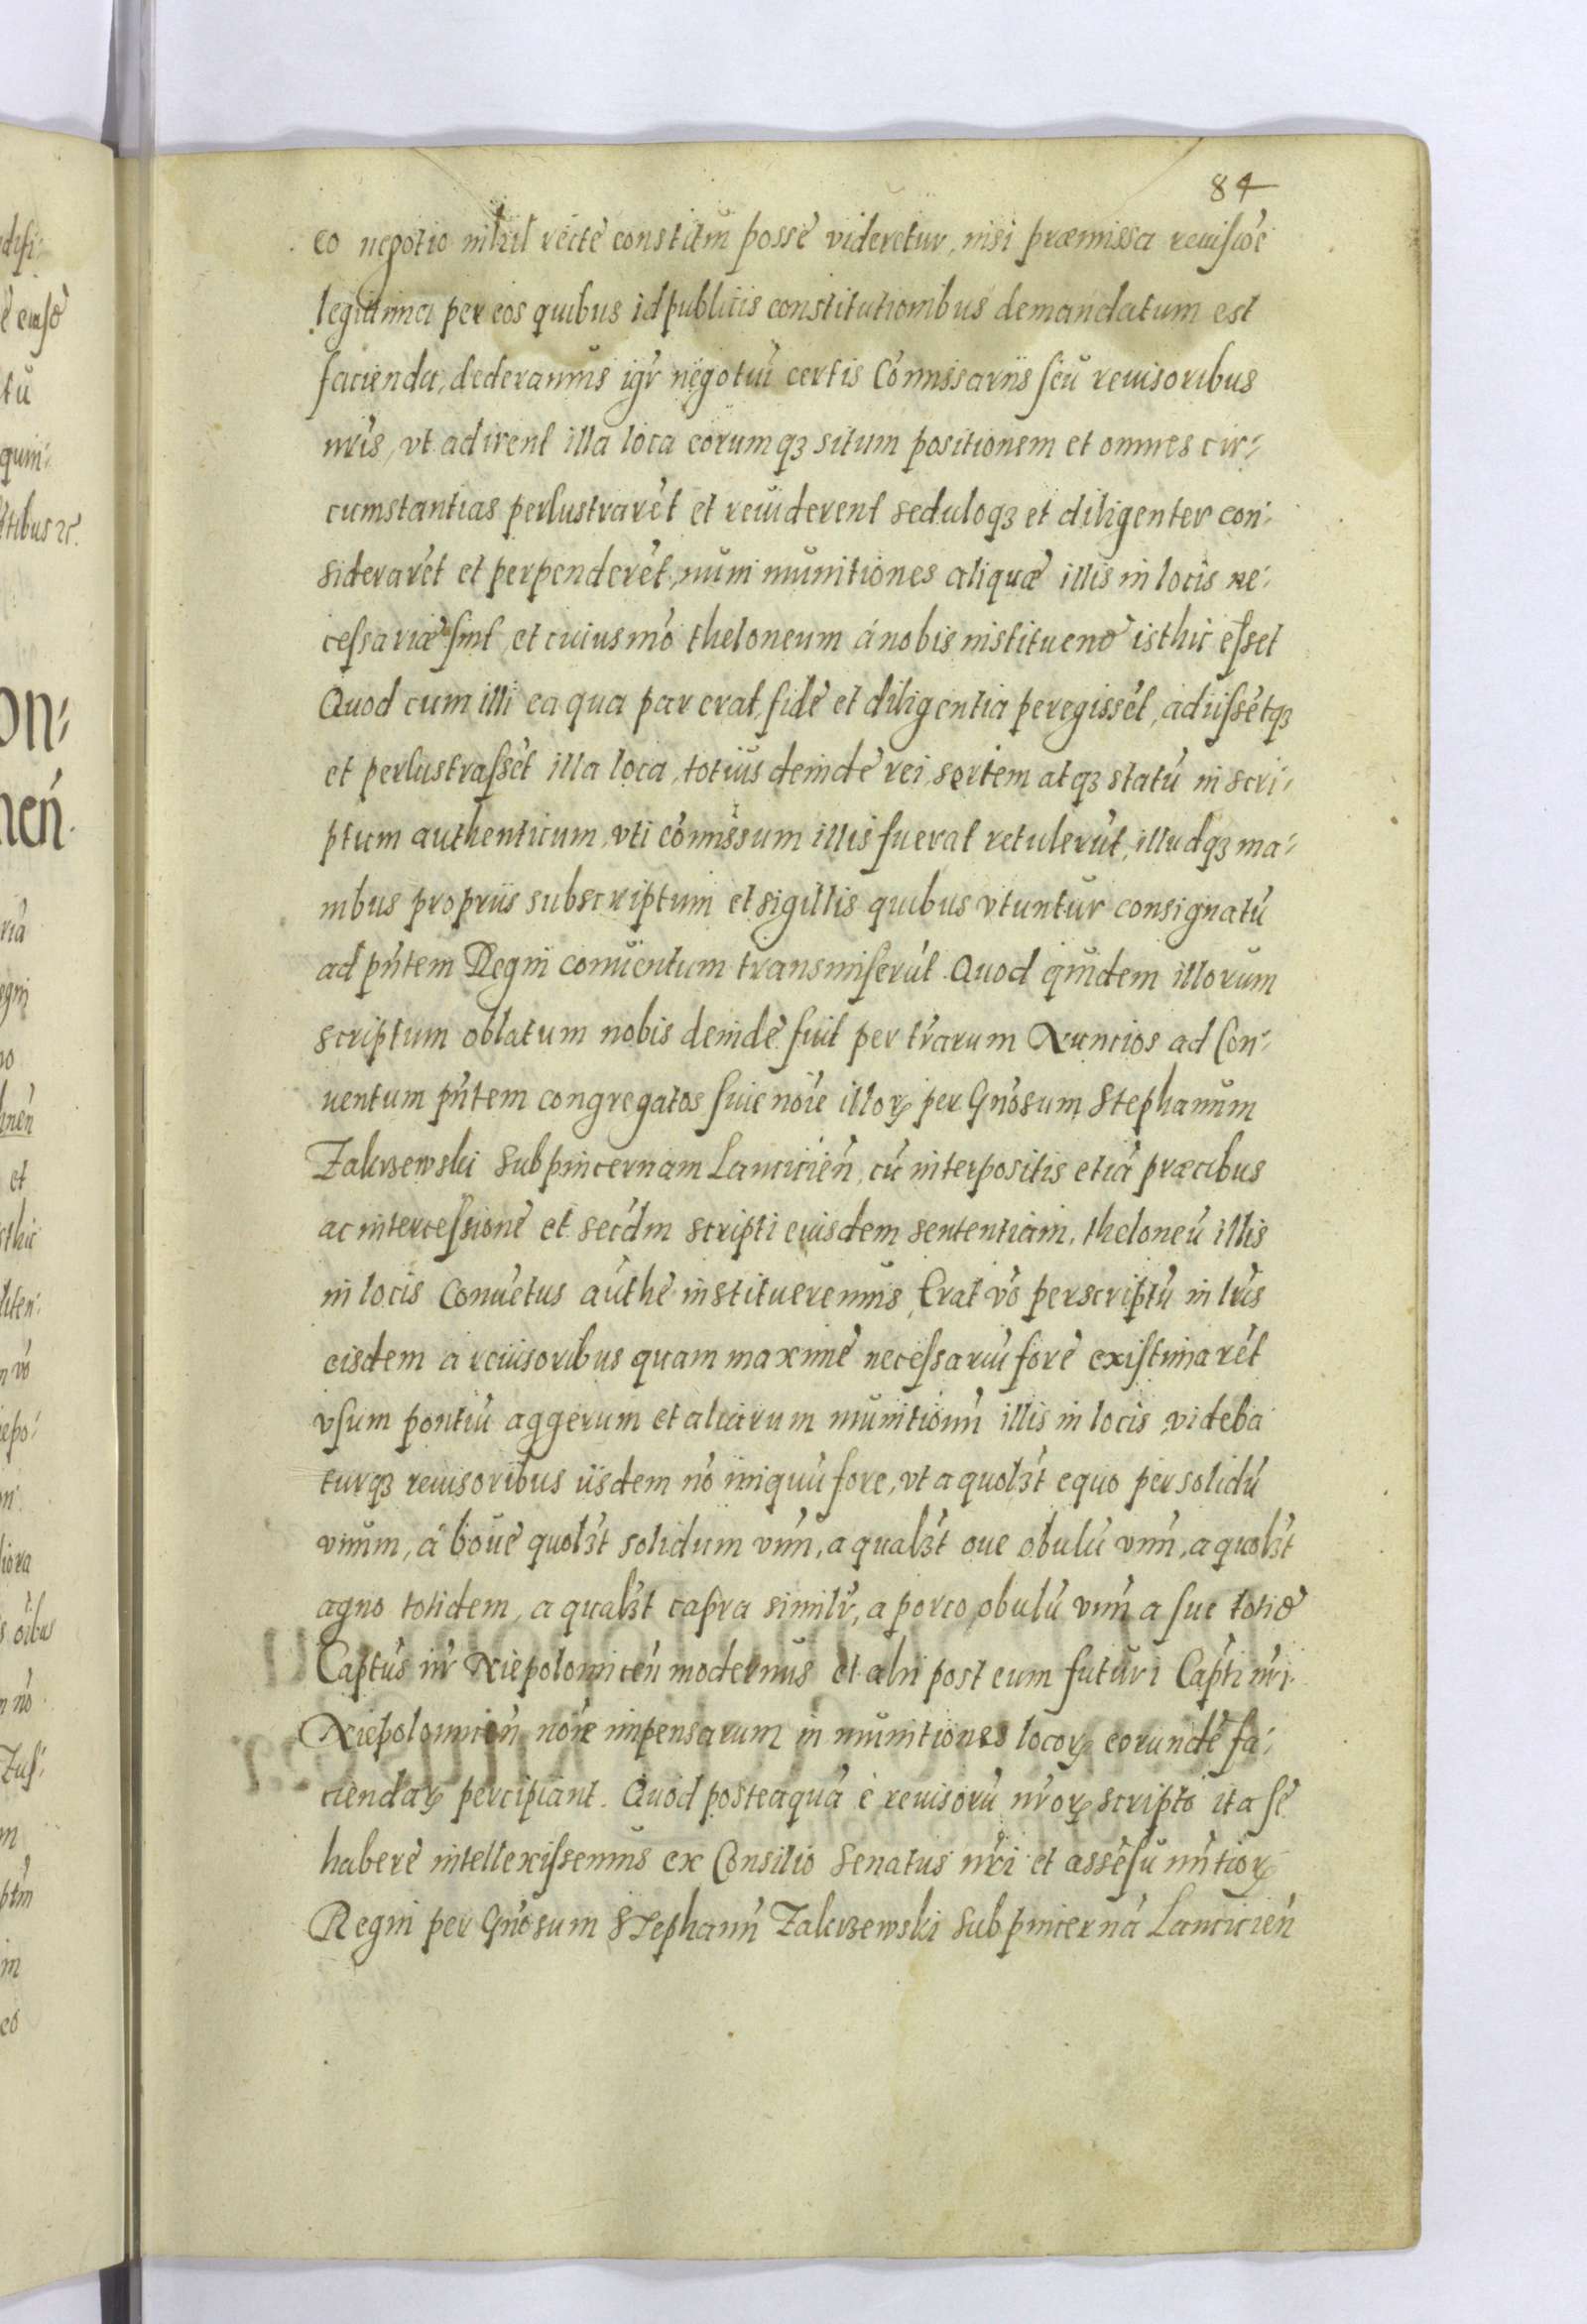 84
eo negotio nihil recte constitūi posse videretur, nisi præmissa reuisiōe
legitima per eos quibus id publicis constitutionibus demandatum est
facienda, dederamus igr̃ negotiū certis Com̃issariis seu reuisoribus
nr̃is, vt adirent illa loca eorumqꝫ situm positionem et omnes cir-
cumstantias perlustrarēt et reuiderent seduloqꝫ et diligenter con-
siderarēt et perpenderēt, num munitiones aliquæ illis in locis ne-
cessariæ sint, et cuiusmōo theloneum á nobis instituend̃ isthic esset
Quod cum illi ea qua par erat fide et diligentia peregissēt, adiissētqꝫ
et perlustrassēt illa loca, totius deinde rei sortem atqꝫ statū in scri-
ptum authenticum, vti com̃issum illis fuerat retulerūt, illudqꝫ ma-
nibus propriis subscriptum et sigillis quibus vtuntur consignatū
ad pñtem Regni conuentum transmiserūt. Quod quidem illorum
scriptum oblatum nobis deinde fuit per tr̃arum Nuncios ad Con-
uentum pñtem congregatos siue nōie illorꝝ per Gñosum Stephanum
Zakrzewski Subpincernam Lancicieñ, cū interpositis etiā præcibus
ac intercessione et secd̃m scripti eiusdem sententiam, theloneū illis
in locis Conuētus aūthē institueremus, Erat vō perscriptū in lr̃is
eisdem a reuisoribus quam maxime necessariū fore existimarēt
vsum pontiū aggerum et aliarum munitionū illis in locis, videba
turqꝫ reuisoribus iisdem nō iniquū fore, vt a quolꝫt equo per solidū
vnum, á boue quolꝫt solidum vnū, a qualꝫt oue obulū vnū, a quolꝫt
agno totidem, a qualꝫt capra similr̃, a porco obulū vnū a sue totid̃
Captus nr̃ Niepolomiceñ modernus et alii post eum futuri Capti nr̃i
Niepolomiceñ nōie impensarum in munitiones locorꝝ eorundē fa-
ciendarꝝ percipiant. Quod posteaquā é reuisorū nr̃orꝝ scripto ita se
habere intellexissemus ex Consilio Senatus nr̃i et assēsu nūtiorꝝ
Regni per Gñosum Stephanū Zakrzewski Subpincernā Lancicieñ